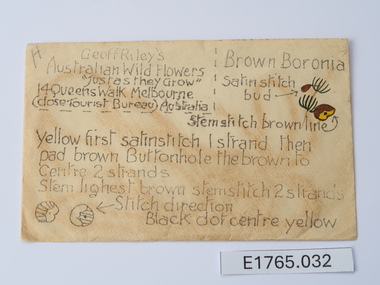 Geoff Riley's
Australian Wild Flowers
"Just as they Grow"
14 Queens Walk Melbourne
(close Tourist Bureau) Australia
Brown Boronia
Satin stitch
bud
Stem stitch brown line
Yellow first satinstitch 1 strand then
pad brown Buttonhole the brown to
Centre 2 strands
Stem lighest brown stemstitch 2 strands
Stitch direction
Black dot centre yellow
E1765.032